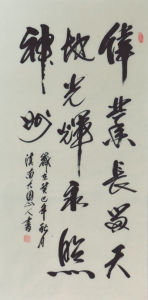 偉業長留天
地光輝永照
神州
歲在癸巳年秋月
滇南大山人書